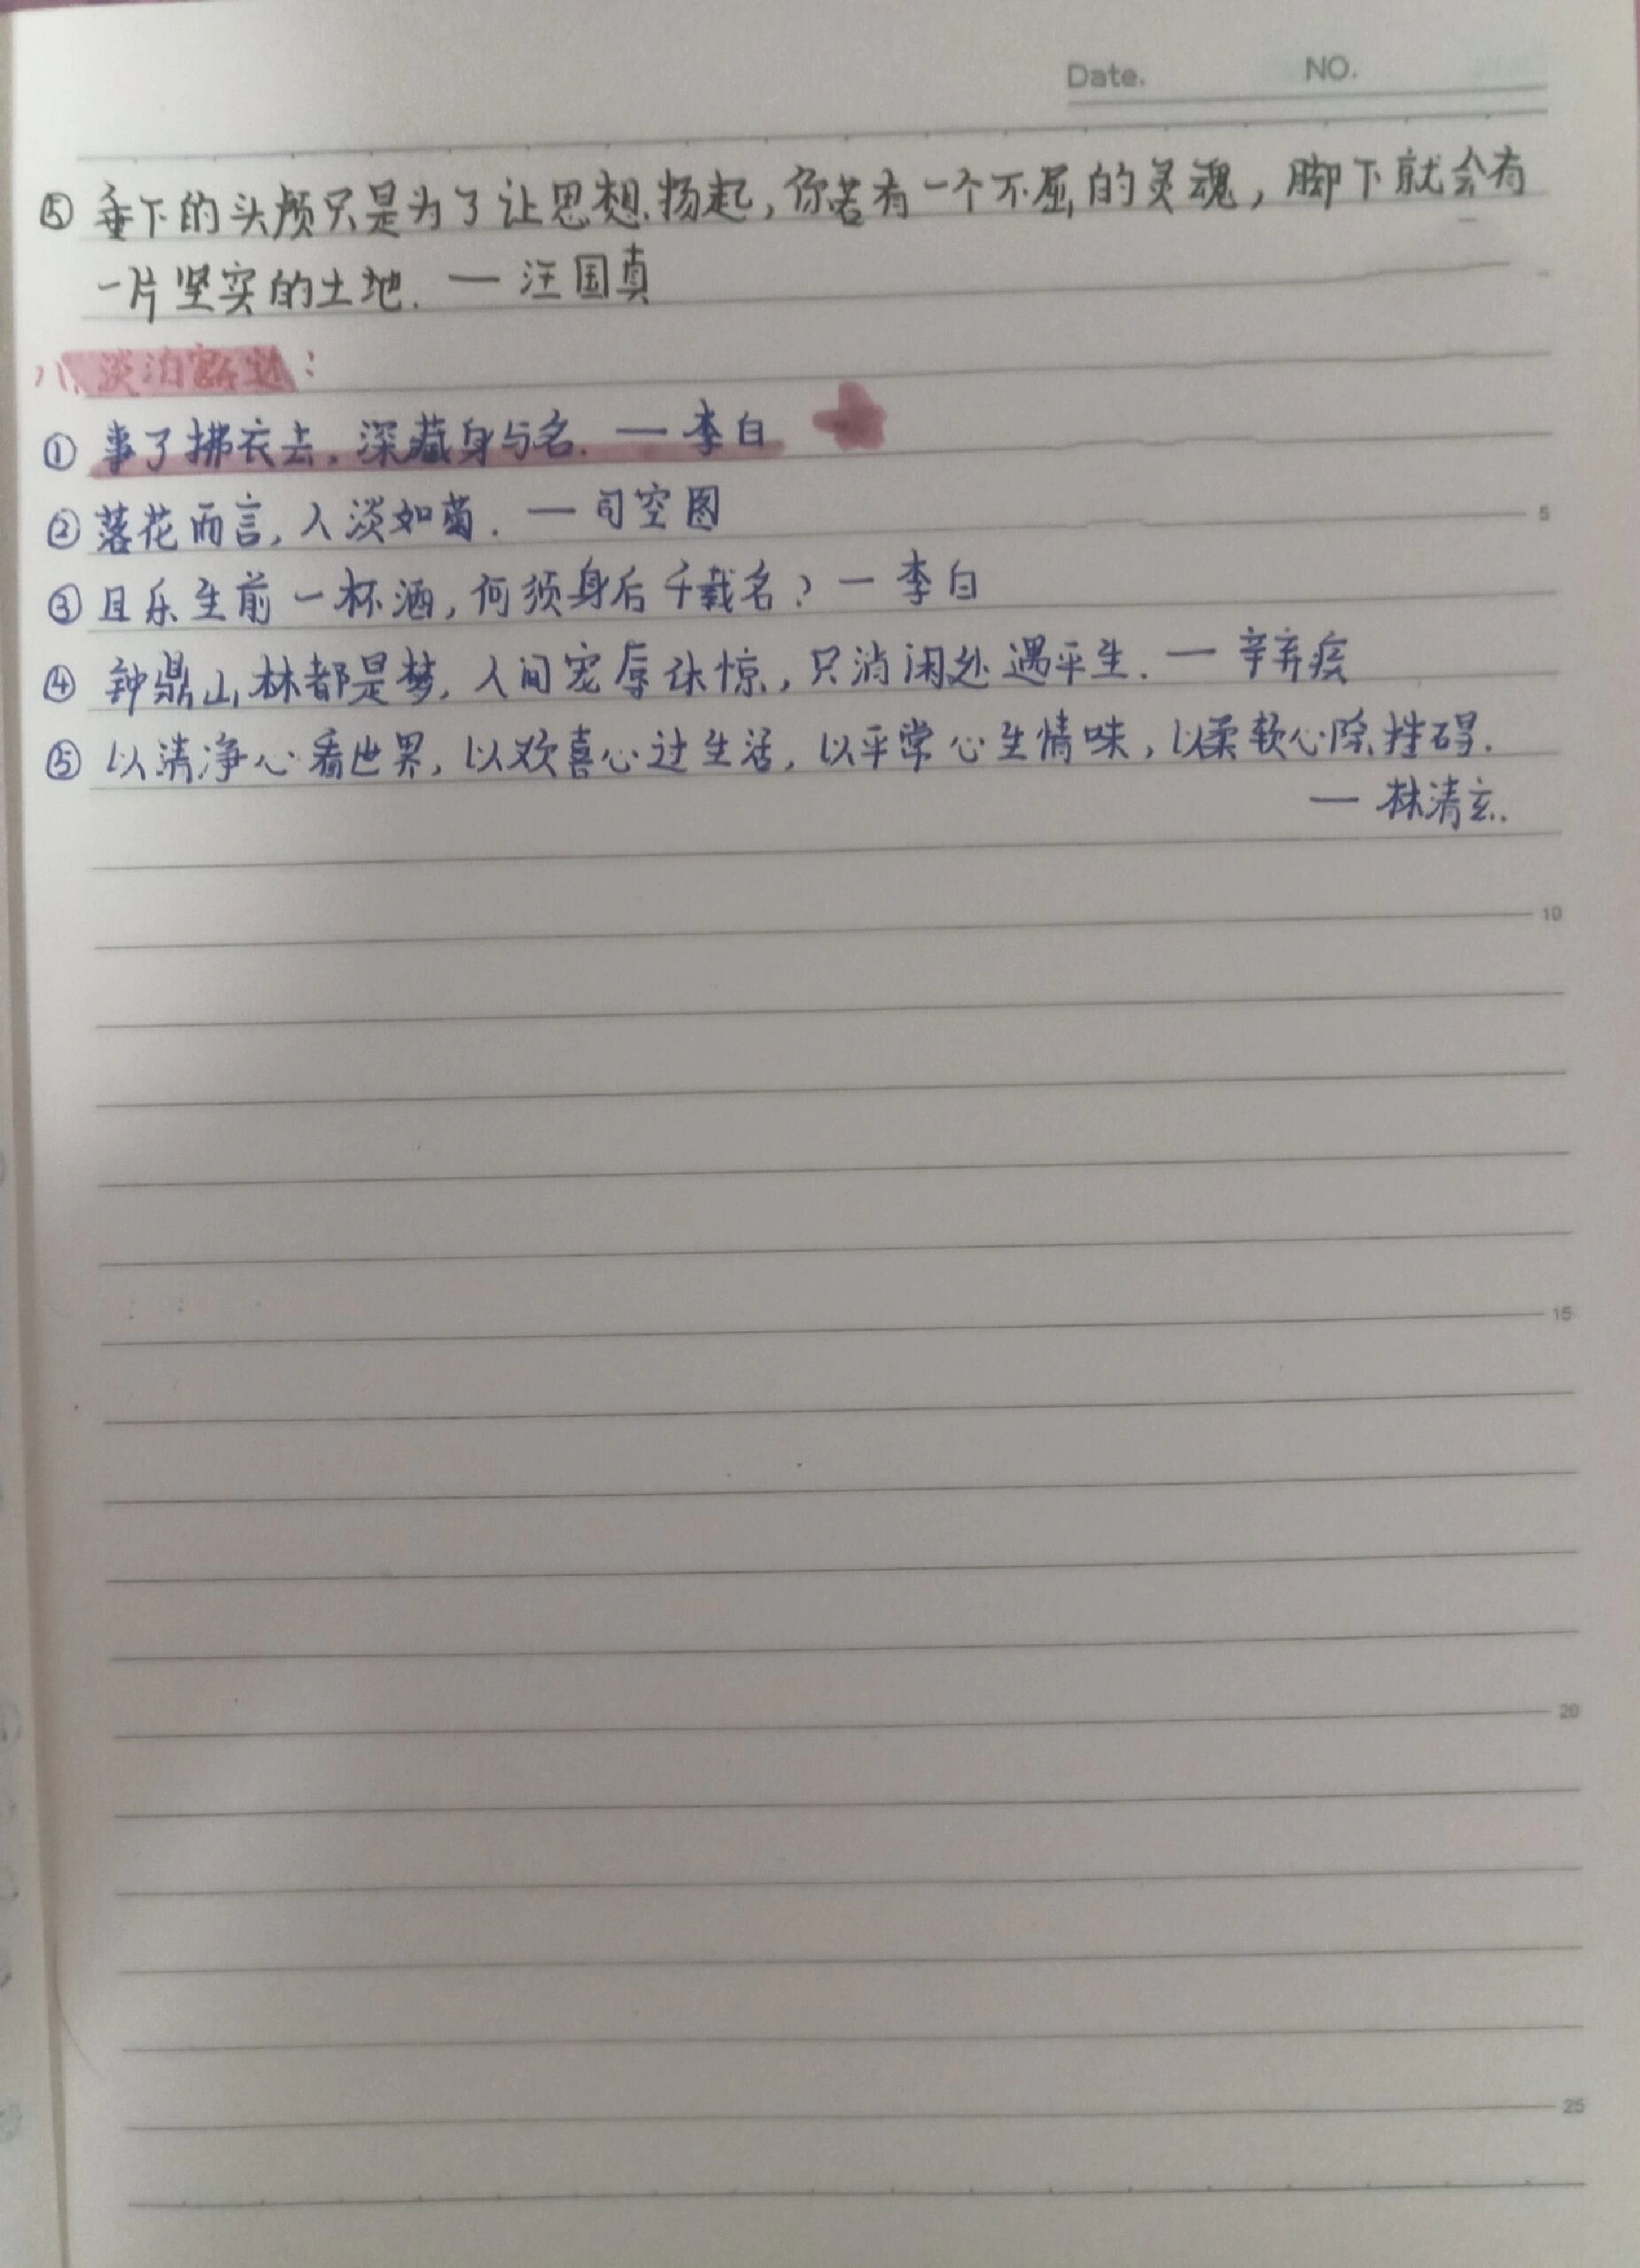 Date. NO.
⑤ 垂下的头颅只是为了让思想扬起,你若有一个不屈的灵魂,脚下就会有
一片坚实的土地. — 汪国真
八、淡泊宁:
① 事了拂衣去,深藏身与名. — 李白
② 落花而言,人淡如菊. — 司空图
5
③ 且乐生前一杯酒,何须身后千载名? — 李白
④ 钟鼎山林都是梦,人间宠辱休惊,只消闲处遇平生. — 辛弃疾
⑤ 以清净心看世界,以欢喜心过生活,以平常心生情味,以柔软心除挂碍.
— 林清玄.
10
15
20
25